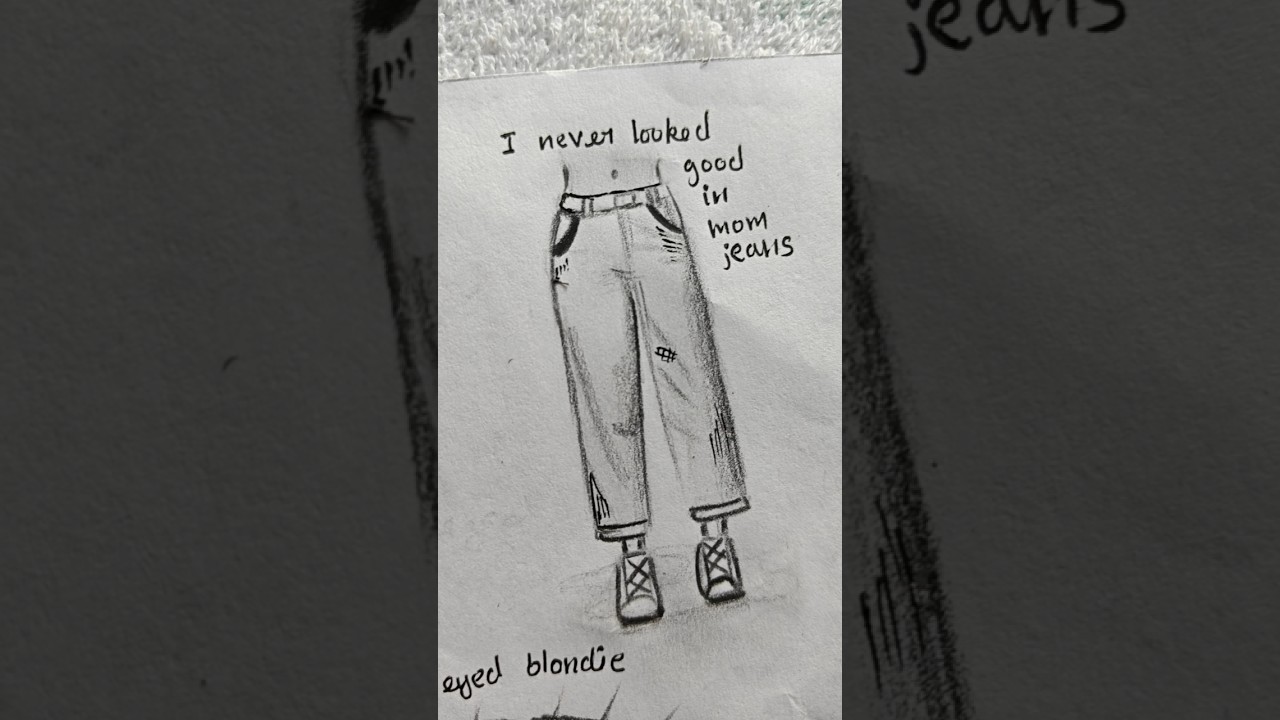 jeans
I never looked
good
in
mom
jeans
eyed blondie